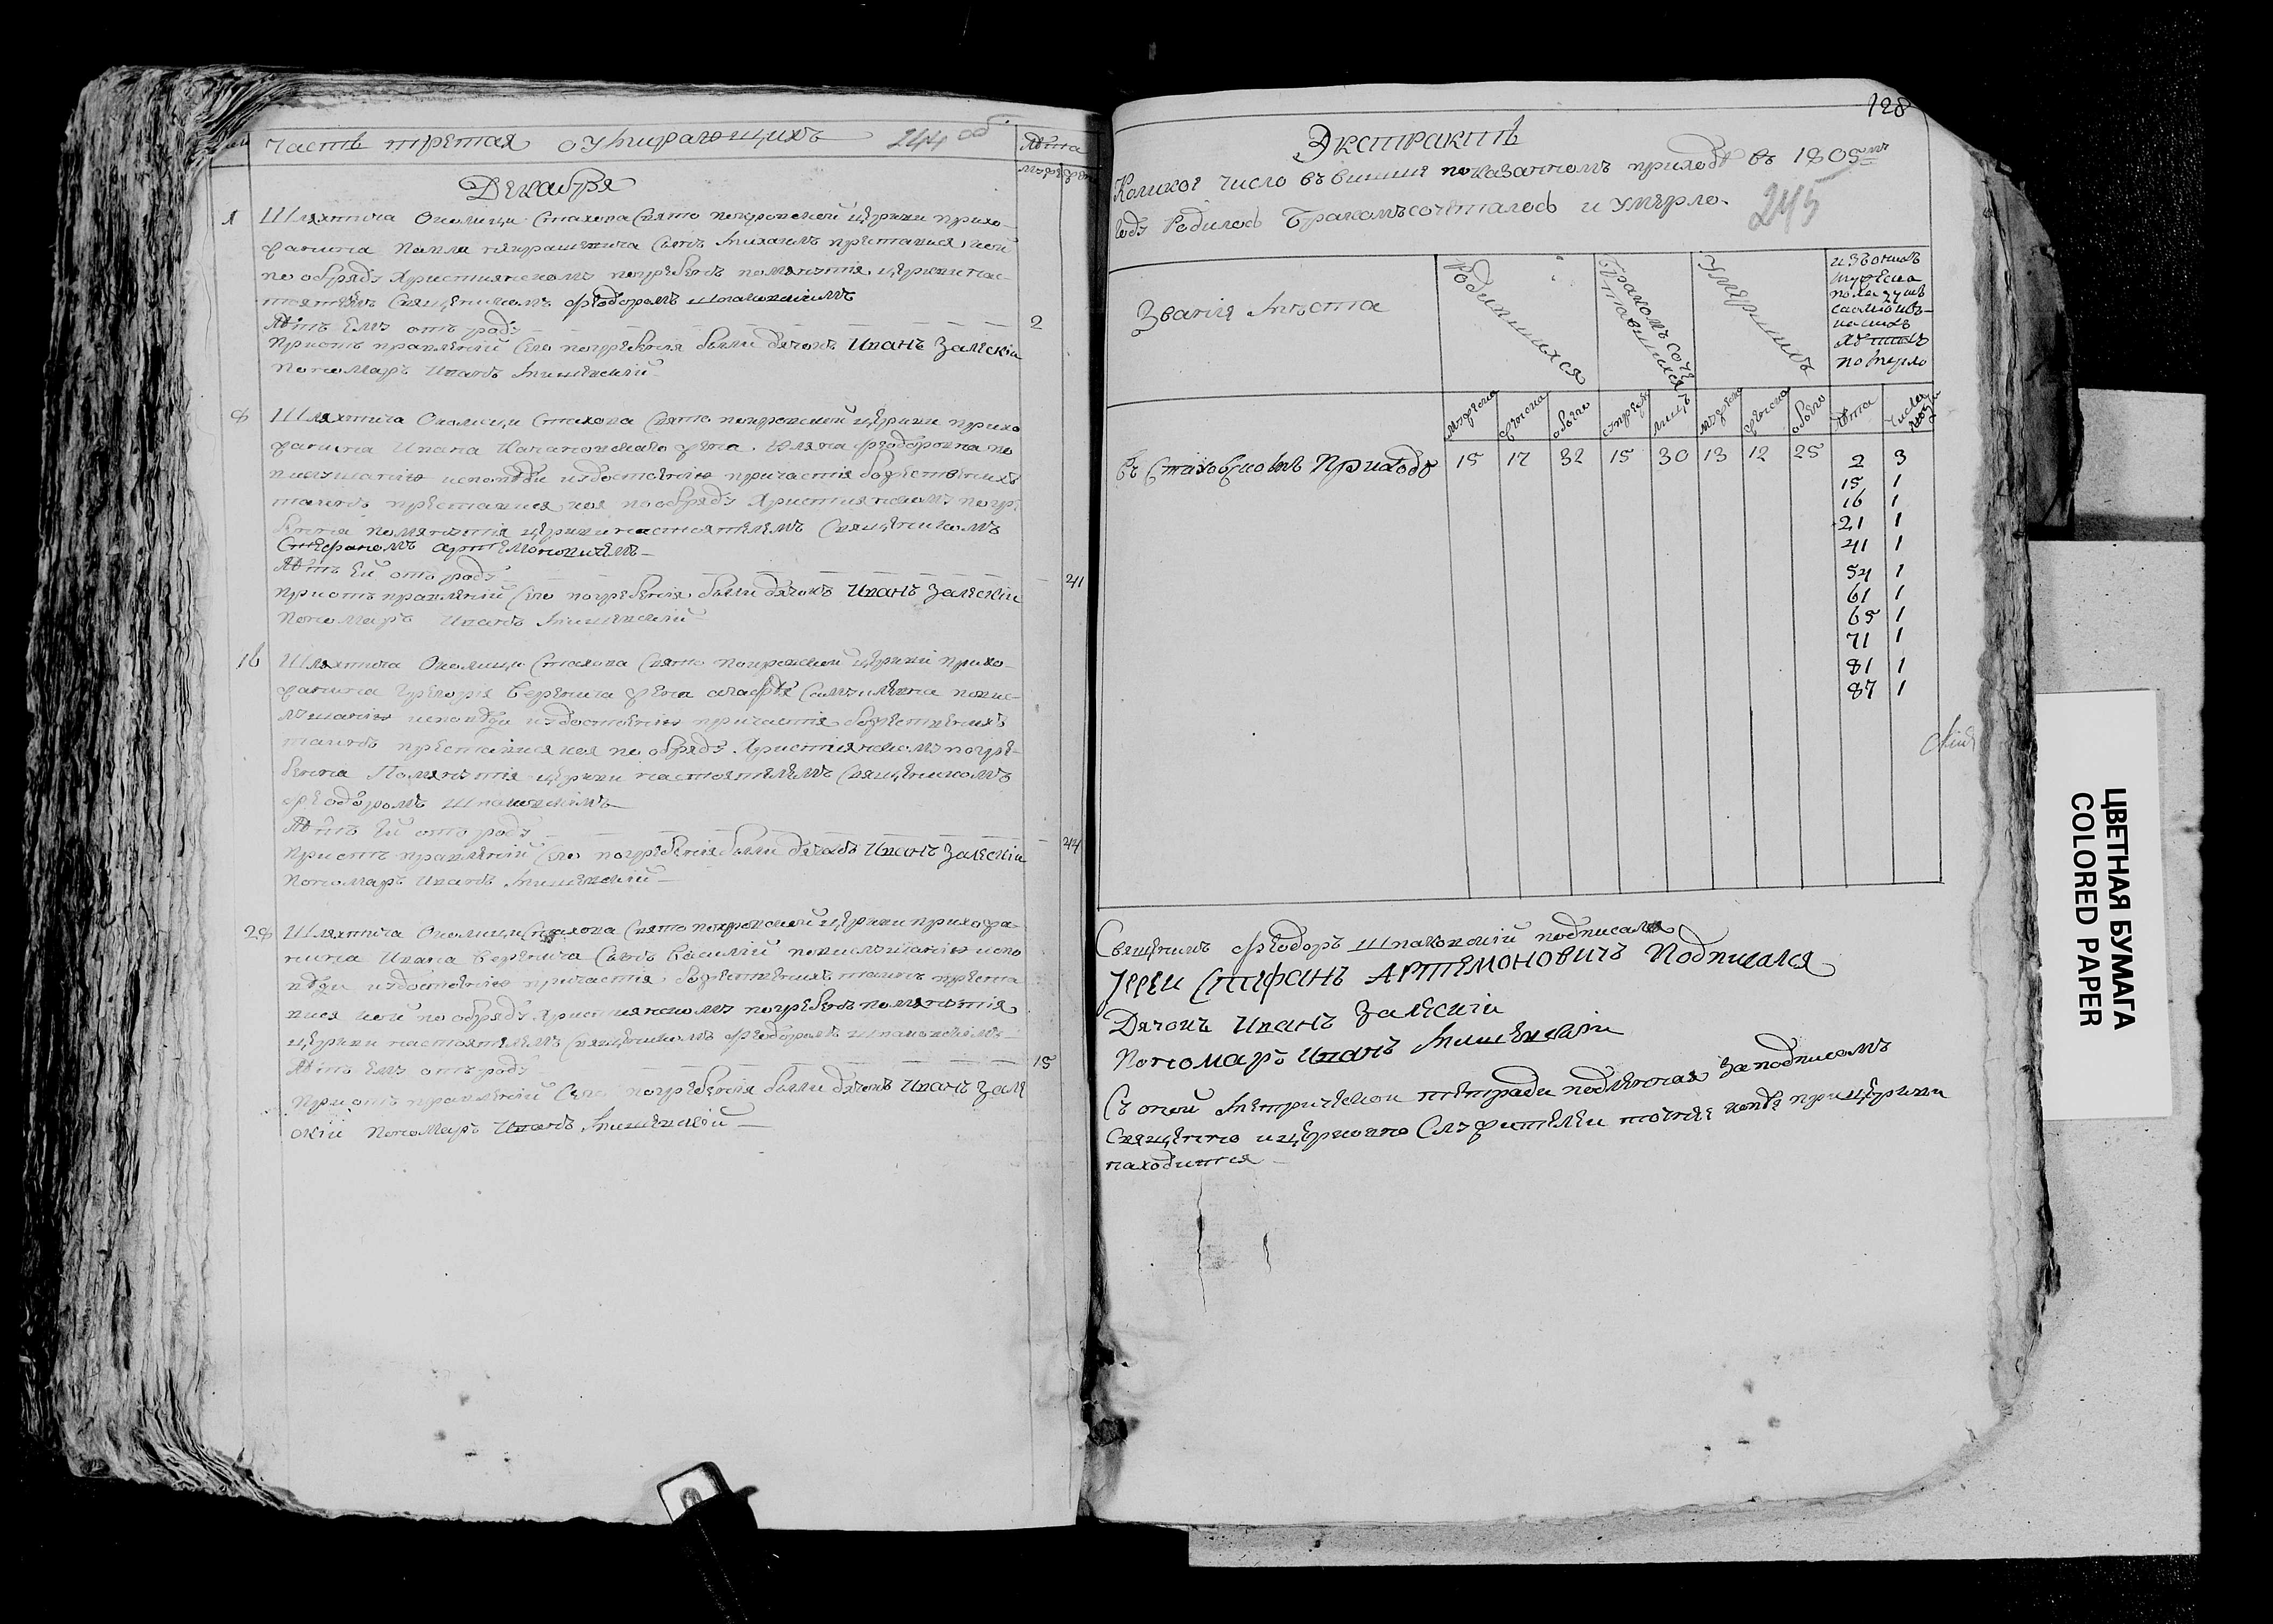 Часть третая о умирающихъ 244 об.
Лѣта
Декабря
1 Шляхтича Околици Стахова Свято покровской церкви прихо-
жанина Павла сынъ Михаилъ преставися, кой
по обряду Християнскомъ погребенъ помянутія церкви нас-
тоятелемъ Священикомъ Феодоромъ Шпаковскимъ
Лѣтъ ему отъ роду 2
При отправленіи сего погребенія были дячокъ Иванъ Залескіи
Пономаръ Иванъ Мишевскій
8 Шляхтича Околици Стахова Свято покровской церкви прихо
жанина Ивана жена Феодоровна по
выслушанію исповѣди и удостоенію причастія божественихъ
таинъ преставися коя по обряду Християнскомъ погре
бенна помянутія церкви настоятелемъ Священикомъ
Стефаномъ Артемоновичемъ
Лѣтъ ей отъ роду 41
При отправленіи сего погребенія были дячокъ Иванъ Залескіи
Пономаръ Иванъ Мишевскій
16 Шляхтича Околици Стахова Свято покровской церкви прихо-
жанина Григорія Веренича жена повис-
лушанію исповѣди и удостоенію причастія божественихъ
таинъ преставися коя по обряду Християнскомъ погре-
бенна Помянутія церкви настоятелемъ Священикомъ
Феодоромъ Шпаковскимъ
Лѣтъ ей отъ роду
При отправленіи сего погребенія были дячокъ Иванъ Залескіи
Пономаръ Иванъ Мишевскій
28 Шляхтича Околици Стахова Свято покровской церкви прихожа-
нина Ивана Веренича сынъ Василій повислушанію испо
вѣди и удостоенію причастія божественихъ таинъ преста
вися кой по обряду Християнскомъ погребенъ помянутія
церкви настоятелемъ Священикомъ Феодоромъ Шпаковскимъ
Лѣтъ ему отъ роду 15
При отправленіи сего погребенія были дячокъ Иванъ Зале
скіи Пономаръ Иванъ Мишевскій
128
Экстрактъ
Коликое число въ вишше показанномъ приходѣ въ 1805мъ
году Родилось Бракомъ сочеталось и умерло.
245
Званія мѣста
Родившихся
Бракомъ соче
тавшихся
Умершихъ
изъ онихъ
мужеска
пола душъ
лѣтъ
померло
мужеска женска обоего мужеска женска обоего Лѣта Числа
въ Стаховскомъ Приходѣ 15 17 32 15 30 13 12 25 2 3
15 1
16 1
21 1
41 1
54 1
61 1
65 1
71 1
81 1
87 1
Священикъ Феодоръ Шпаковскій подписался
Іереи Стефанъ Артемоновичъ Подписался
Дячокъ Иванъ Залескіи
Пономаръ Иванъ Мишевскіи
Съ оной метрической тетради подленная за подписомъ
Священно и церковно Служителеи точная копія при церкви
находится
ЦВЕТНАЯ БУМАГА
COLORED PAPER